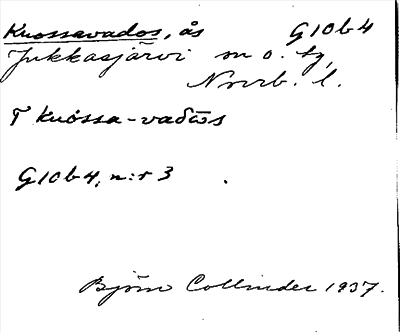 Kuossavados, ås G10b4
Jukkasjärvi sn o. tg,
Norrb. l.
T kuóssa-vaδōs
G10b4, n:r 3
Björn Collinder 1937.